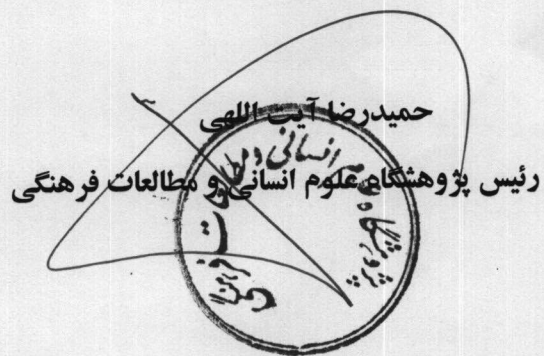 حمیدرضا آیت اللهی
رئیس پژوهشگاه علوم انسانی و مطالعات فرهنگی